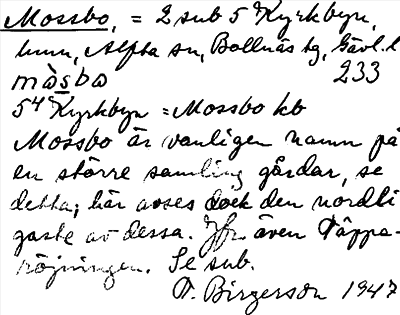 Mossbo, = 2 sub 5 Kyrkbyn,
hmn, Alfta sn, Bollnäs tg, Gävl. l
måsbo 233
54 Kyrkbyn = Mossbo kb
Mossbo är vanligen namn på
en större samling gårdar, se
detta; här avses dock den nordli
gaste av dessa. Jfr. även Täppa-
röjningen. Se sub.
T. Birgerson 1947